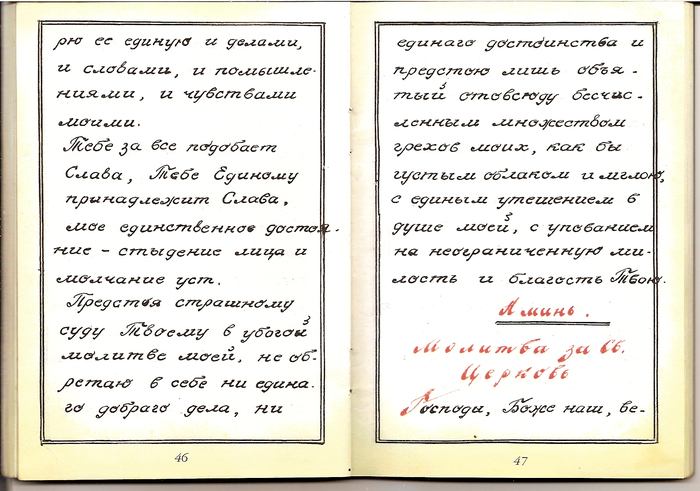 рю ее единую и делами,
и словами, и помышле-
ниями, и чувствами
моими.
Тебе за все подобает
Слава, Тебе Единому
принадлежит Слава,
мое единственное достоя-
ние – стыдение лица и
молчание уст.
Предстоя страшному
суду Твоему в убогой
молитве моей, не об-
ретаю в себе ни едина-
го добраго дела, ни
46
единаго достоинства и
предстою лишь объя-
тый отовсюду бесчис-
ленным множеством
грехов моих, как бы
густым облаком и мглою,
с единым утешением в
душе моей, с упованием
на неограниченную ми-
лость и благость Твою.
Аминь.
Молитва за Св.
Церковь
Господи, Боже наш, ве-
47